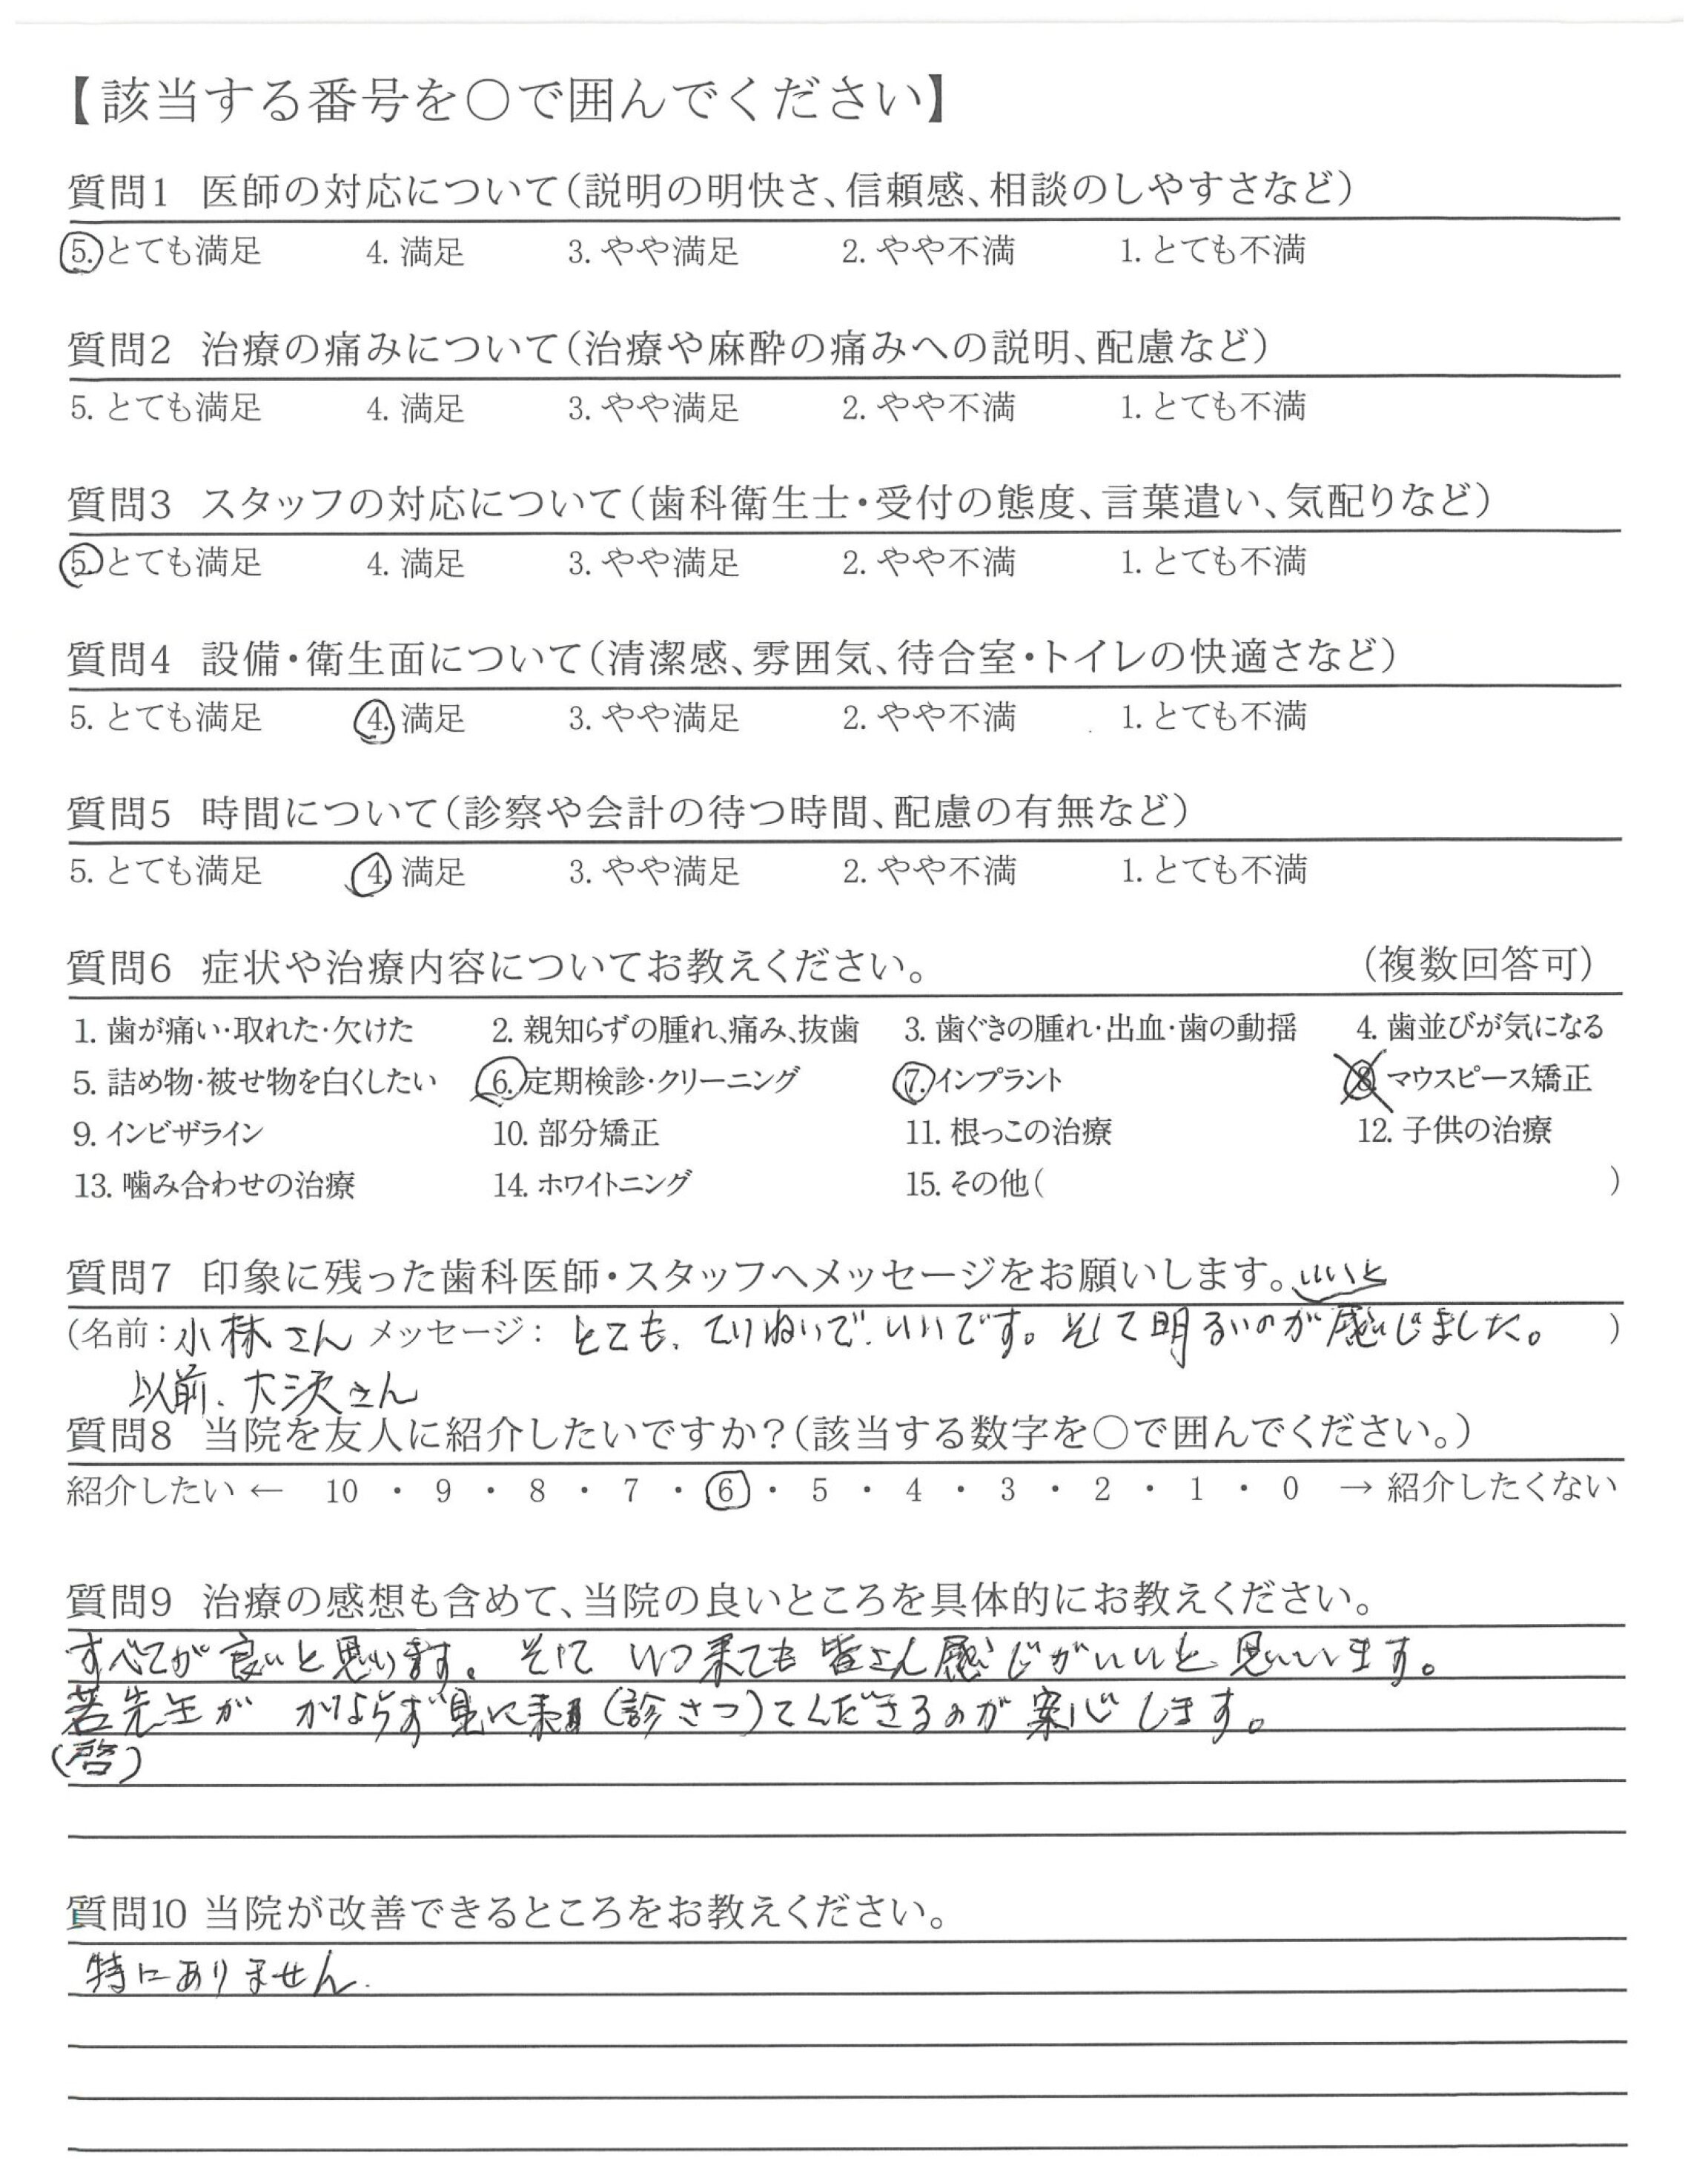 【該当する番号を○で囲んでください】
質問1 医師の対応について(説明の明快さ、信頼感、相談のしやすさなど)
5. とても満足 4. 満足 3. やや満足 2. やや不満 1. とても不満
質問2 治療の痛みについて(治療や麻酔の痛みへの説明、配慮など)
5. とても満足 4. 満足 3. やや満足 2. やや不満 1. とても不満
質問3 スタッフの対応について(歯科衛生士・受付の態度、言葉遣い、気配りなど)
5. とても満足 4. 満足 3. やや満足 2. やや不満 1. とても不満
質問4 設備・衛生面について(清潔感、雰囲気、待合室・トイレの快適さなど)
5. とても満足 4. 満足 3. やや満足 2. やや不満 1. とても不満
質問5 時間について(診察や会計の待つ時間、配慮の有無など)
5. とても満足 4. 満足 3. やや満足 2. やや不満 1. とても不満
質問6 症状や治療内容についてお教えください。 (複数回答可)
1. 歯が痛い・取れた・欠けた 2. 親知らずの腫れ、痛み、抜歯 3. 歯ぐきの腫れ・出血・歯の動揺 4. 歯並びが気になる
5. 詰め物・被せ物を白くしたい 6. 定期検診・クリーニング 7. インプラント 8. マウスピース矯正
9. インビザライン 10. 部分矯正 11. 根っこの治療 12. 子供の治療
13. 噛み合わせの治療 14. ホワイトニング 15. その他( )
質問7 印象に残った歯科医師・スタッフへメッセージをお願いします。
いいと
(名前：小林さん メッセージ： とても、ていねいで、いいです。そして明るいのが感じました。 )
以前、大沢さん
質問8 当院を友人に紹介したいですか？(該当する数字を○で囲んでください。)
紹介したい ← 10 ・ 9 ・ 8 ・ 7 ・ 6 ・ 5 ・ 4 ・ 3 ・ 2 ・ 1 ・ 0 → 紹介したくない
質問9 治療の感想も含めて、当院の良いところを具体的にお教えください。
すべてが良いと思います。そして いつ来ても 皆さん感じがいいと思います。
若先生が かならず見に来(診さつ)てくださるのが 安心します。
(啓)
質問10 当院が改善できるところをお教えください。
特にありません.